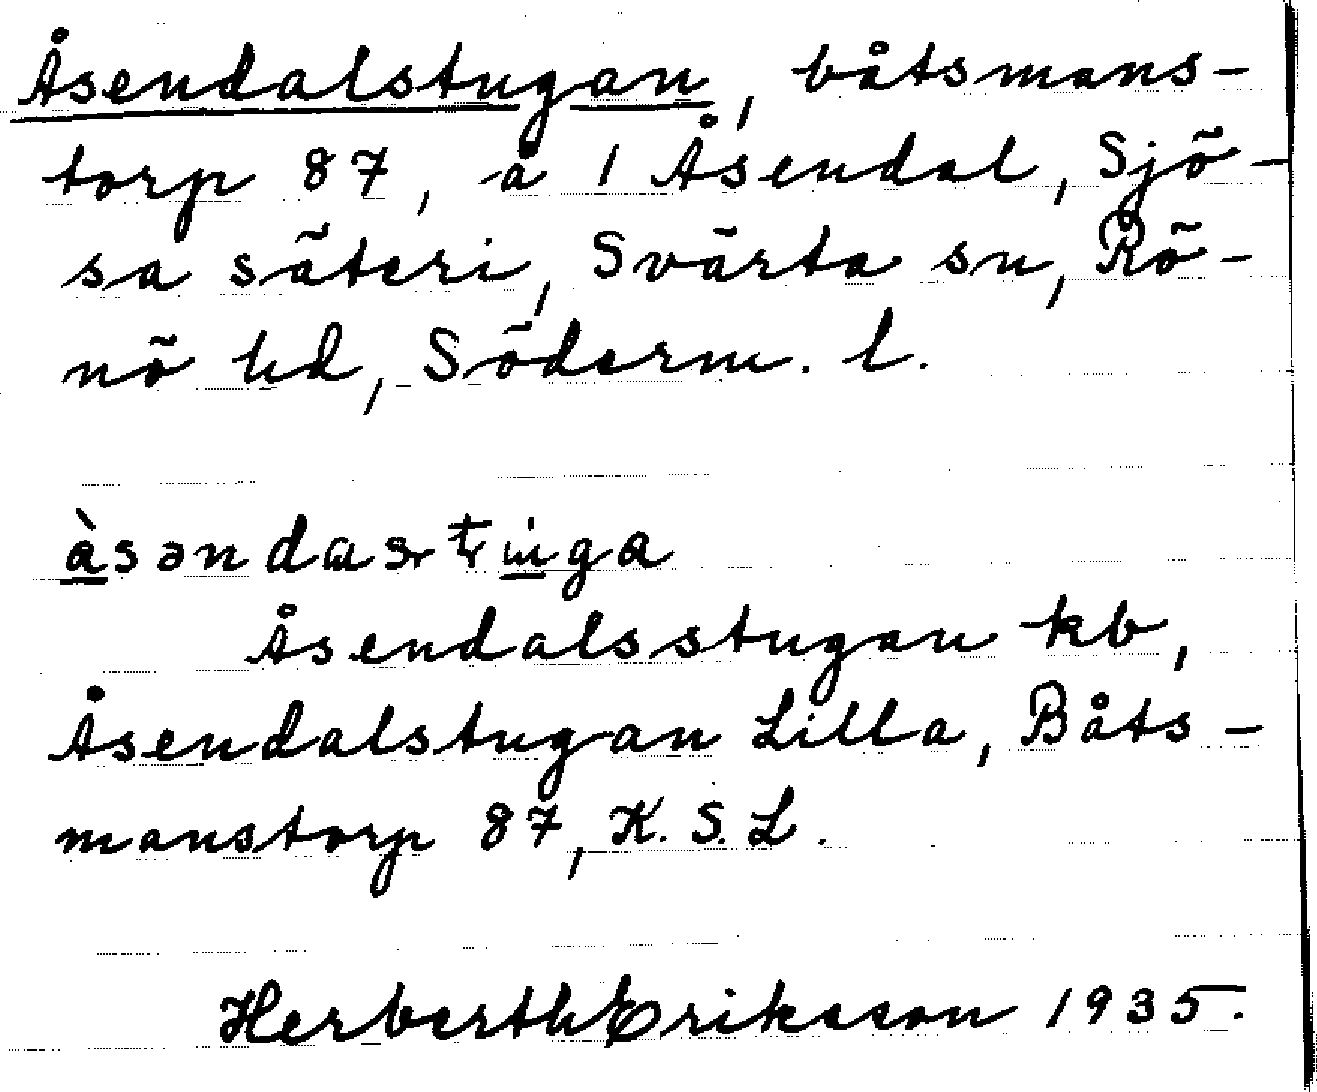 Åsendalstugan, båtsmans-
torp 87, å 1 Åsendal, Sjö-
sa säteri, Svärta sn, Rö-
nö hd, Söderm. l.
Åsendalsstugan kb,
Åsendalstugan Lilla, Båts-
manstorp 87, K. S. L.
Herberth Eriksson 1935.